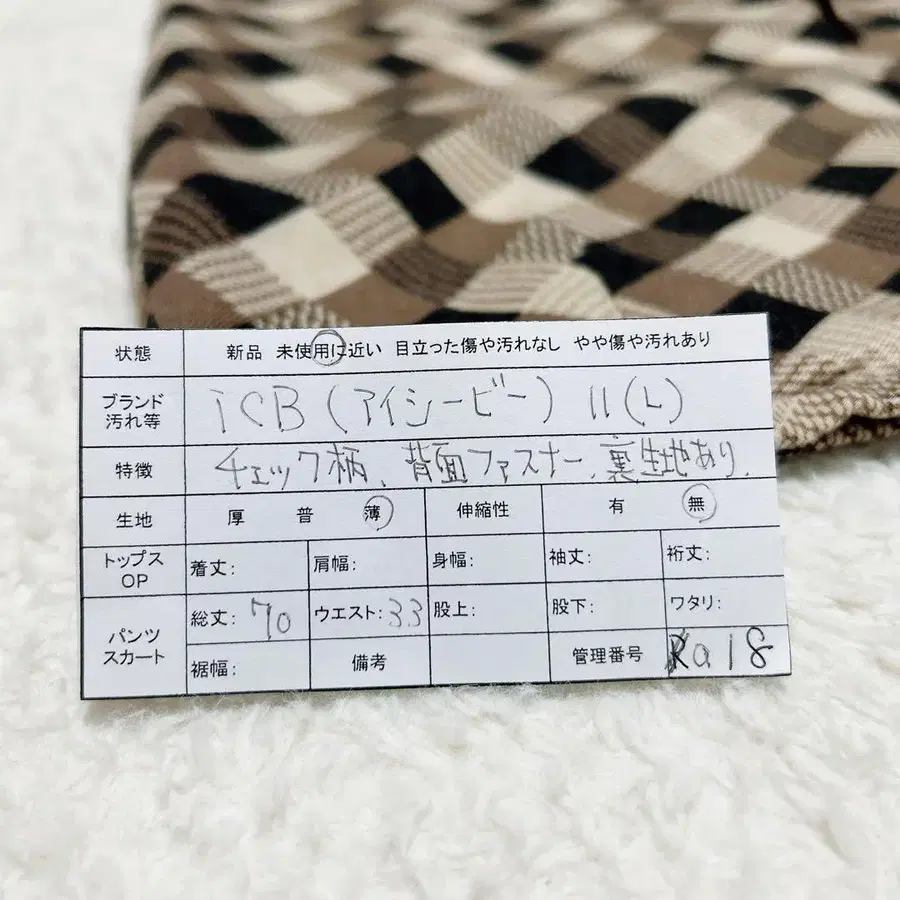 状態 新品 未使用に近い 目立った傷や汚れなし やや傷や汚れあり
ブランド
汚れ等
iCB (アイシービー) 11(L)
特徴 チェック柄、背面ファスナー、裏生地あり、
生地 厚 普 薄 伸縮性 有 無
トップス
OP
着丈: 肩幅: 身幅: 袖丈: 裄丈:
パンツ
スカート
総丈: 70 ウエスト: 33 股上: 股下: ワタリ:
裾幅: 備考 管理番号 Ra18